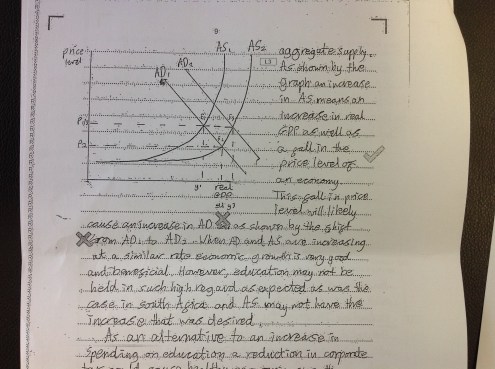 8
price level
AS₁ AS₂
AD₁ AD₂
L3
aggregate supply.
As shown by the
graph an increase
in AS means an
increase in real
GDP as well as
a fall in the
price level of
an economy.
This fall in price
level will likely
y¹
real
GDP
cause an increase in AD as shown by the shift
from AD₁ to AD₂. When AD and AS are increasing
at a similar rate economic growth is very good
and beneficial. However, education may not be
held in such high regard as expected as was the
case in South Africa and AS may not have the
increase that was desired.
As an alternative to an increase in
spending on education a reduction in corporate